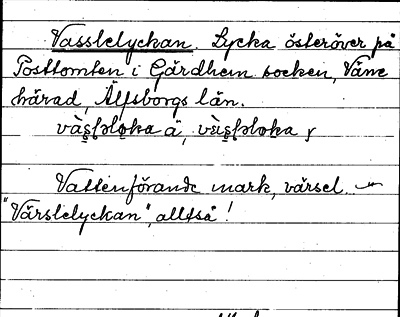 Vasslelyckan. Lycka österöver på
Posttomten i Gärdhem socken, Väne
härad, Älfsborgs län.
Vattenförande mark, värsel.
"Värslelyckan", alltså!